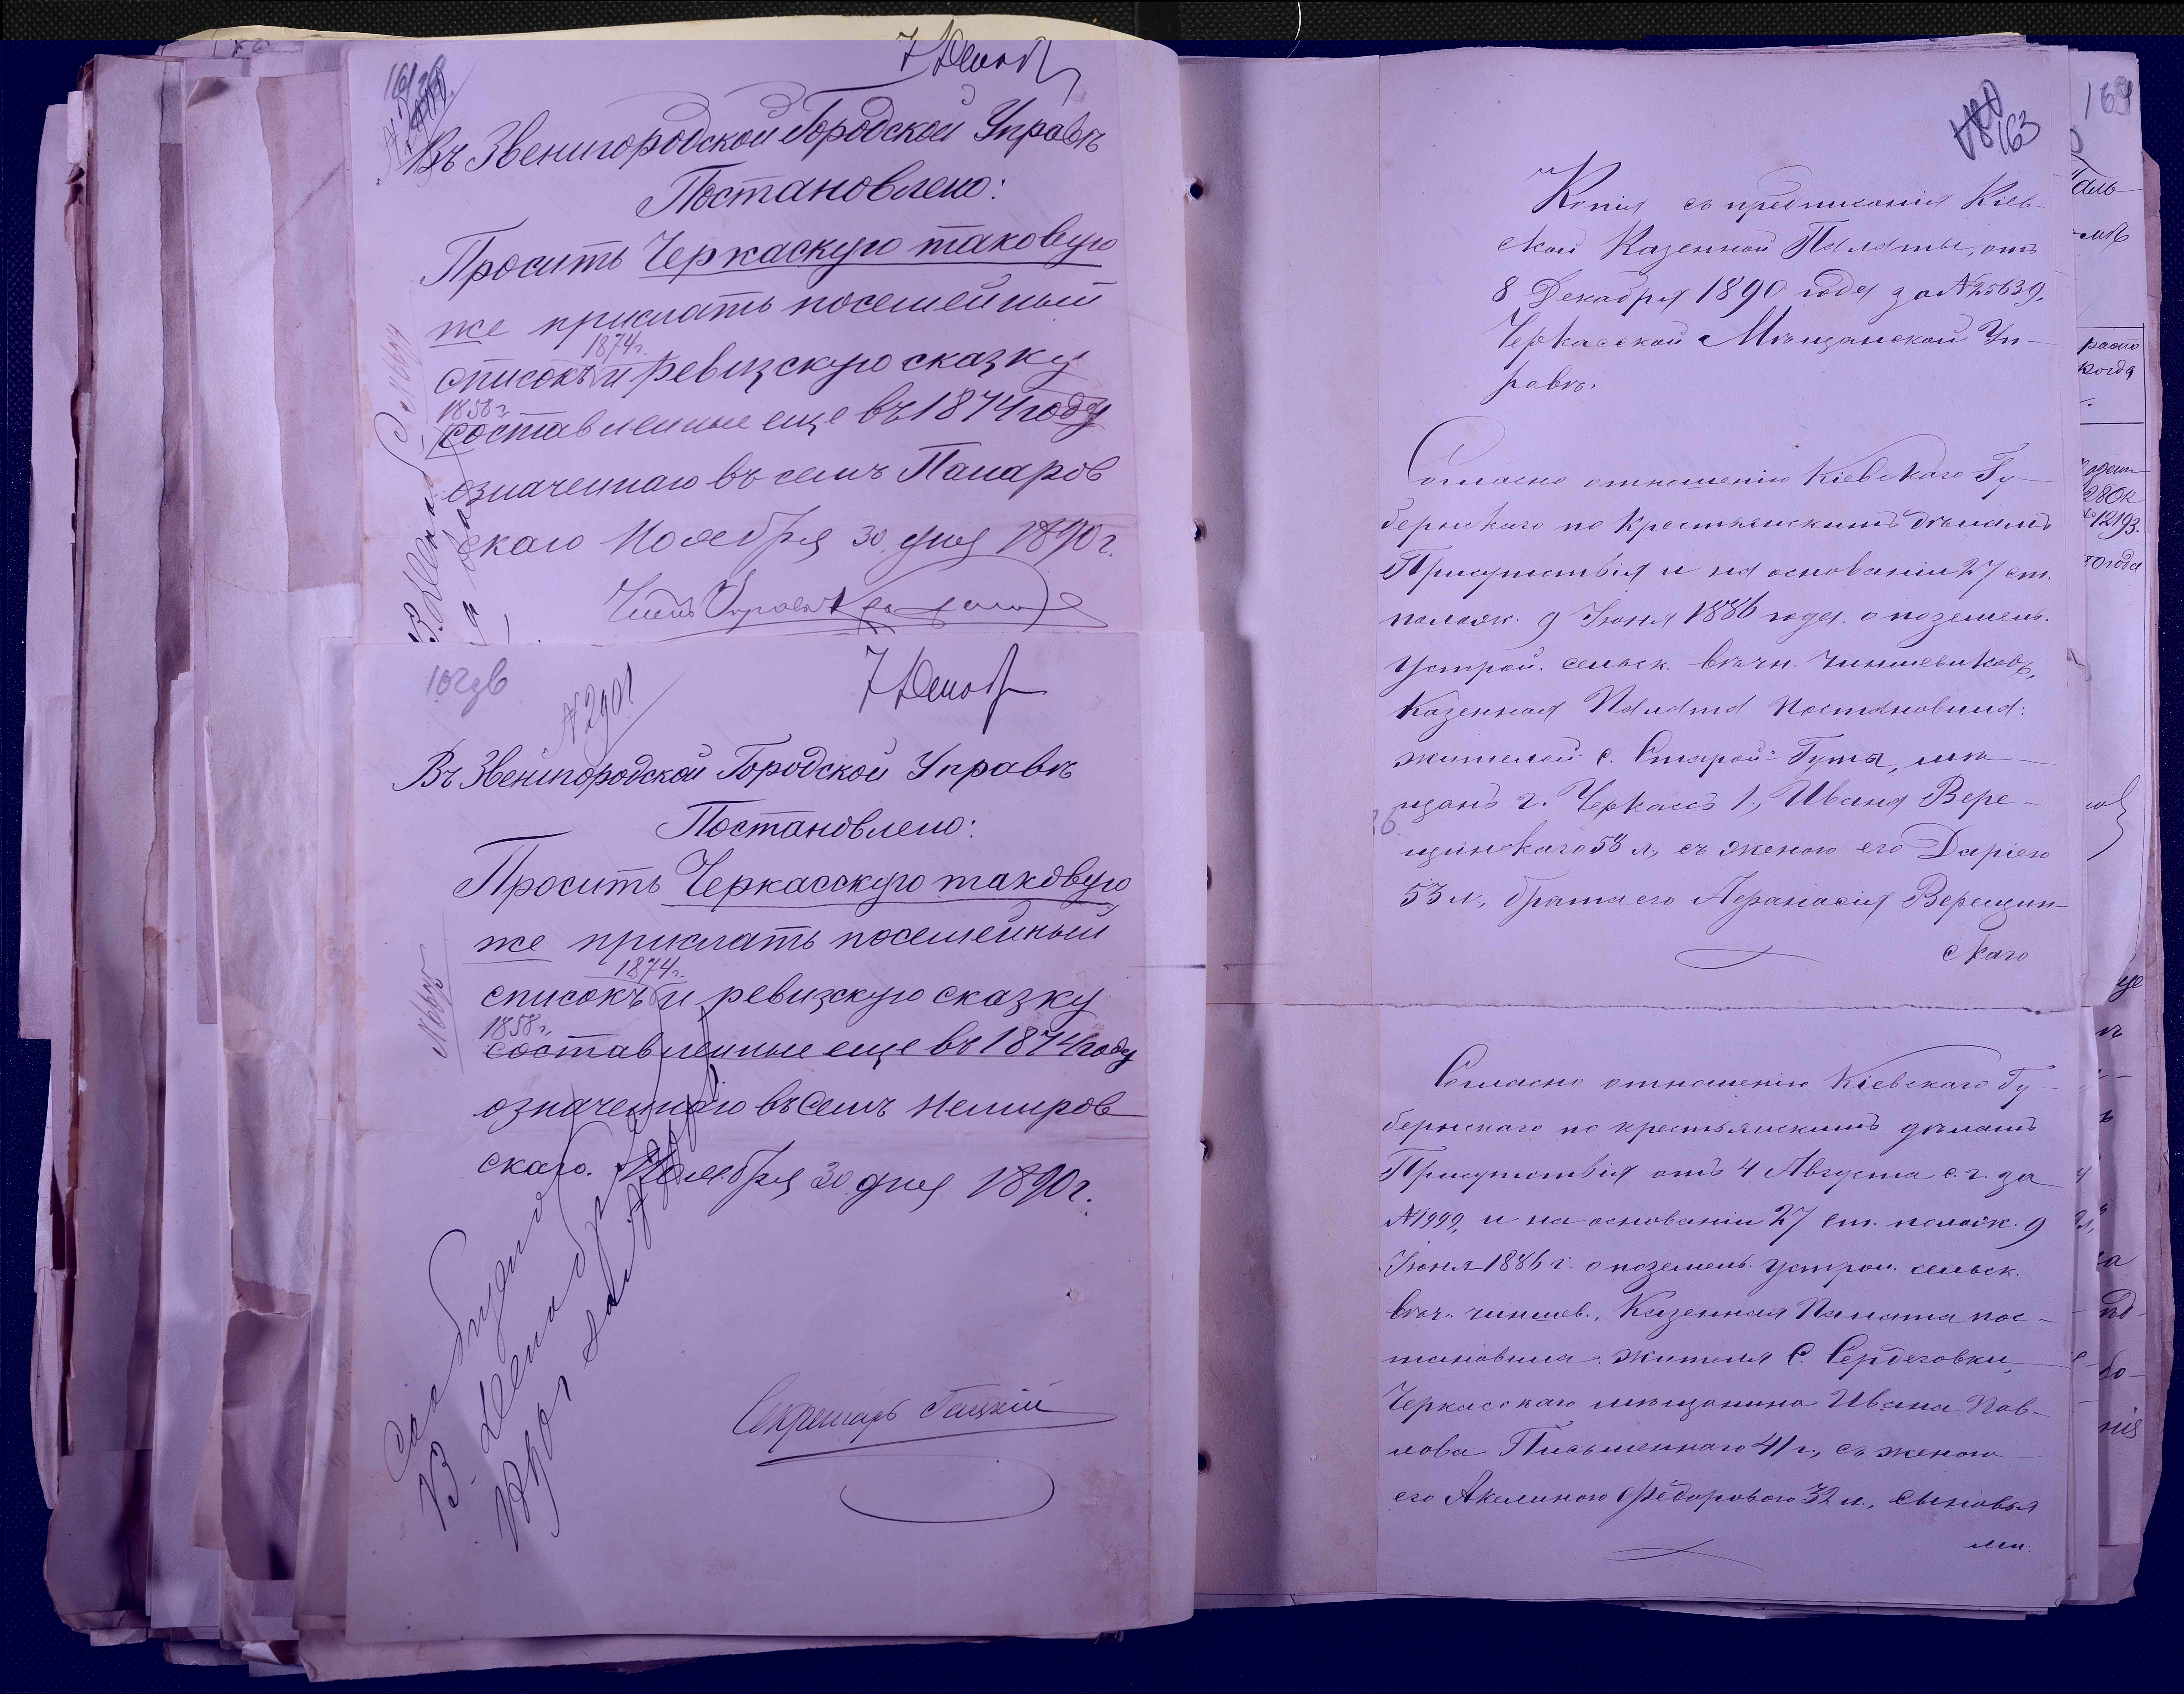 7 Декабр
Въ Звенигородской Городской Управѣ
Постановлено:
Просить Черкаскую таковую
же прислать посемейный
1874г.
списокъ и ревизскую сказку
1858 г.
составленные еще въ 1874 году
означеннаго въ семъ
скаго Ноября 30 дня 1890 г.
Членъ Управы
7 Декабр
№ 2901
Въ Звенигородской Городской Управѣ
Постановлено:
Просить Черкасскую таковую
же прислать посемейный
1874 г.
списокъ и ревизскую сказку
1858 г.
составленные еще въ 1874 году
означеннаго въ семъ Немиров
скаго. Ноября 30 дня 1890 г.
Секретарь
163
Копія съ предписанія Кіев-
ской Казенной Палаты, отъ
8 Декабря 1890 года за № 25639,
Черкасской Мѣщанской Уп-
равѣ.
Согласно отношенію Кіевскаго Гу-
бернскаго по крестьянскимъ дѣламъ
Присутствія и на основаніи 27 ст.
полож. 9 Іюня 1886 года о поземель.
устрой. сельск. вѣчн. чиншевиковъ,
Казенная Палата постановила:
жителей с. Старой-Гуты, мѣ-
щанъ г. Черкасъ 1, Ивана Вере-
щинскаго 58 л, съ женою его Даріею
53 л., брата его Афанасія Верещин-
скаго
Согласно отношенію Кіевскаго Гу-
бернскаго по крестьянскимъ дѣламъ
Присутствія отъ 4 Августа с. г. за
№ 1999, и на основаніи 27 ст. полож. 9
Іюня 1886 г. о поземель. устрои. сельск.
вѣч. чиншев., Казенная Палата пос-
тановила: жителя С. Сердеговки,
Черкасскаго мѣщанина Ивана Пав-
лова Письменнаго 41 г., съ женою
его Акелиною Ѳедоровою 32 л., сыновья
ми